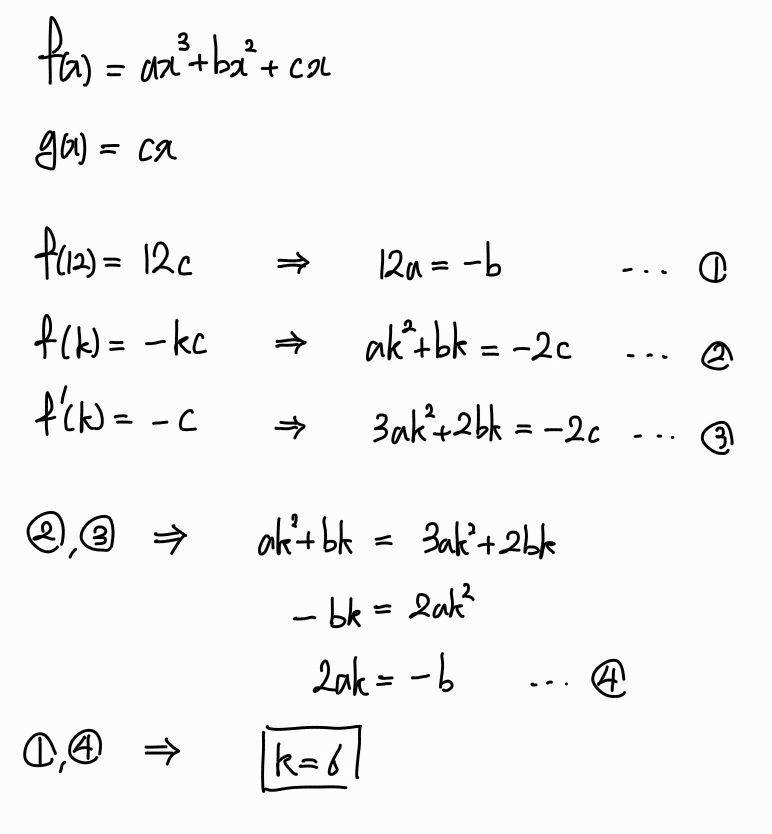 f(x) = ax³+bx²+cx
g(x) = cx
f(12) = 12c ⇒ 12a = -b ... ①
f(k) = -kc ⇒ ak²+bk = -2c ... ②
f'(k) = -c ⇒ 3ak²+2bk = -2c ... ③
②,③ ⇒ ak²+bk = 3ak²+2bk
-bk = 2ak²
2ak = -b ... ④
①,④ ⇒ k=6